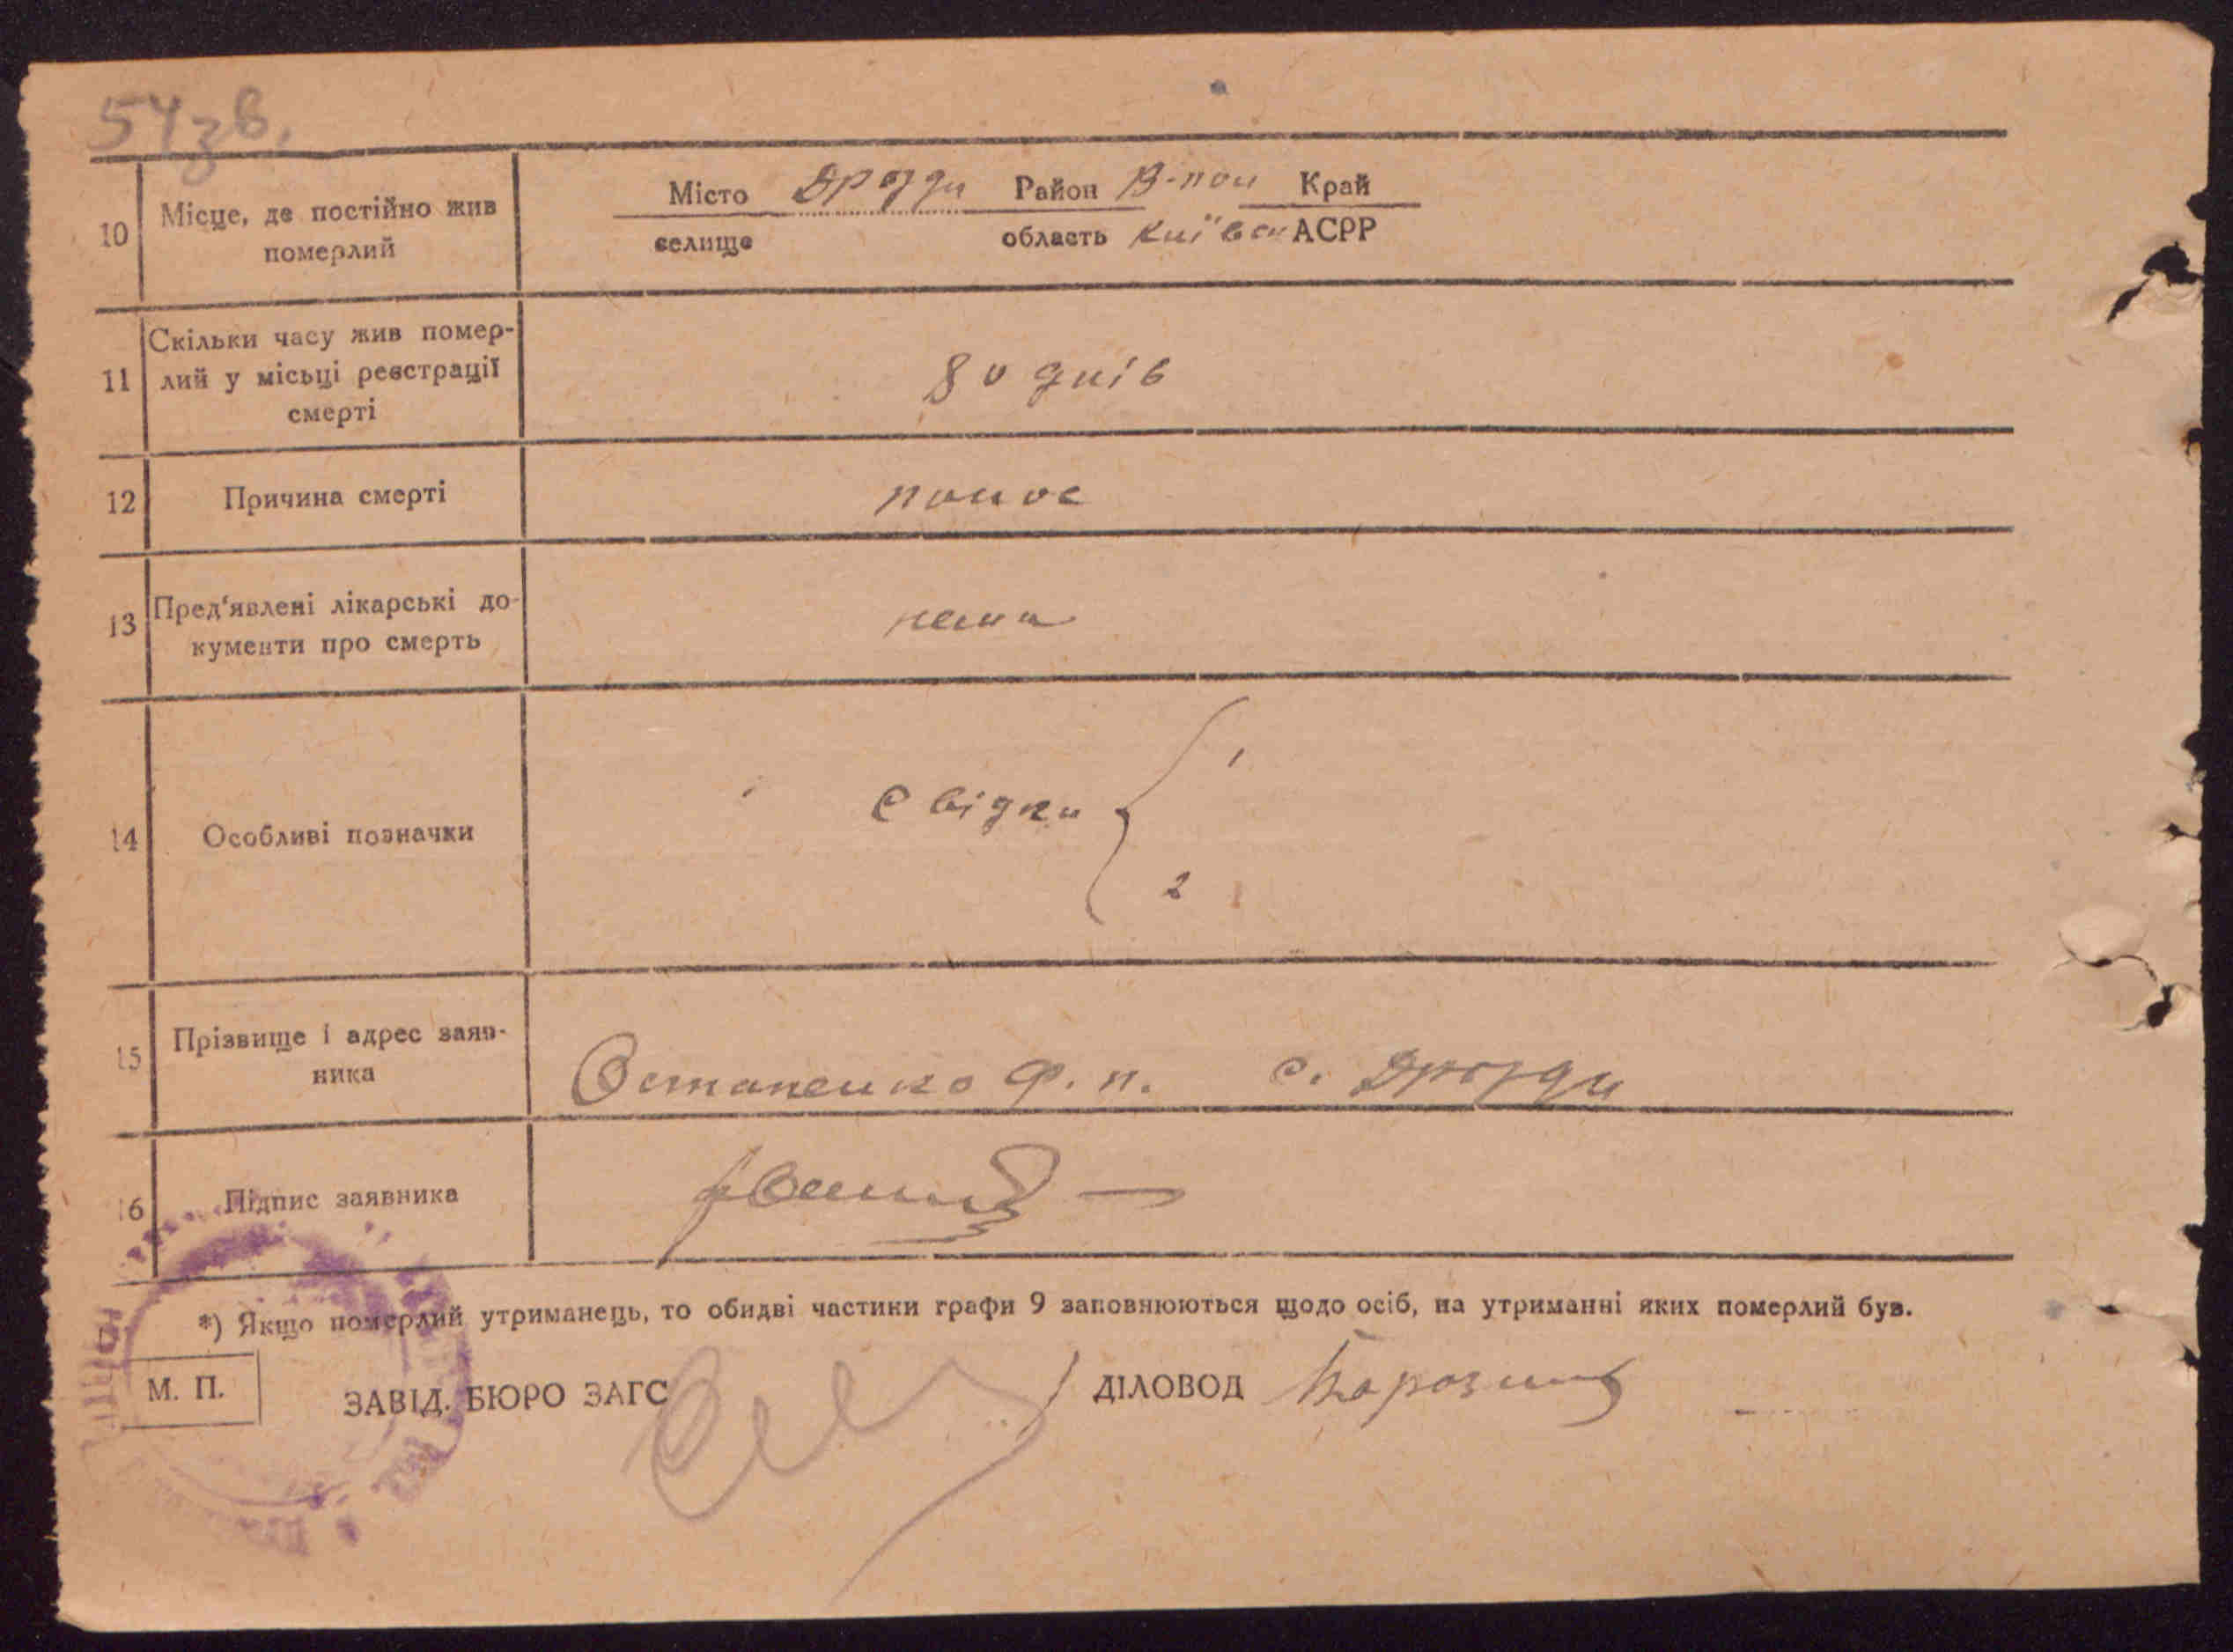 54зв.
10 Місце, де постійно жив померлий
Місто Дрозди Район В-пол Край
селище область Київськ АСРР
11 Скільки часу жив помер-
лий у місьці реєстрації
смерті
80 днів
12 Причина смерті
понос
13 Пред'явлені лікарські до-
кументи про смерть
нема
14 Особливі позначки
Свідки
1
2
15 Прізвище і адрес заяв-
ника
Остапенко Ф. п. с. Дрозди
16 Підпис заявника
*) Якщо померлий утриманець, то обидві частини графи 9 заповнюються щодо осіб, на утриманні яких померлий був.
М. П.
ЗАВІД. БЮРО ЗАГС
ДІЛОВОД